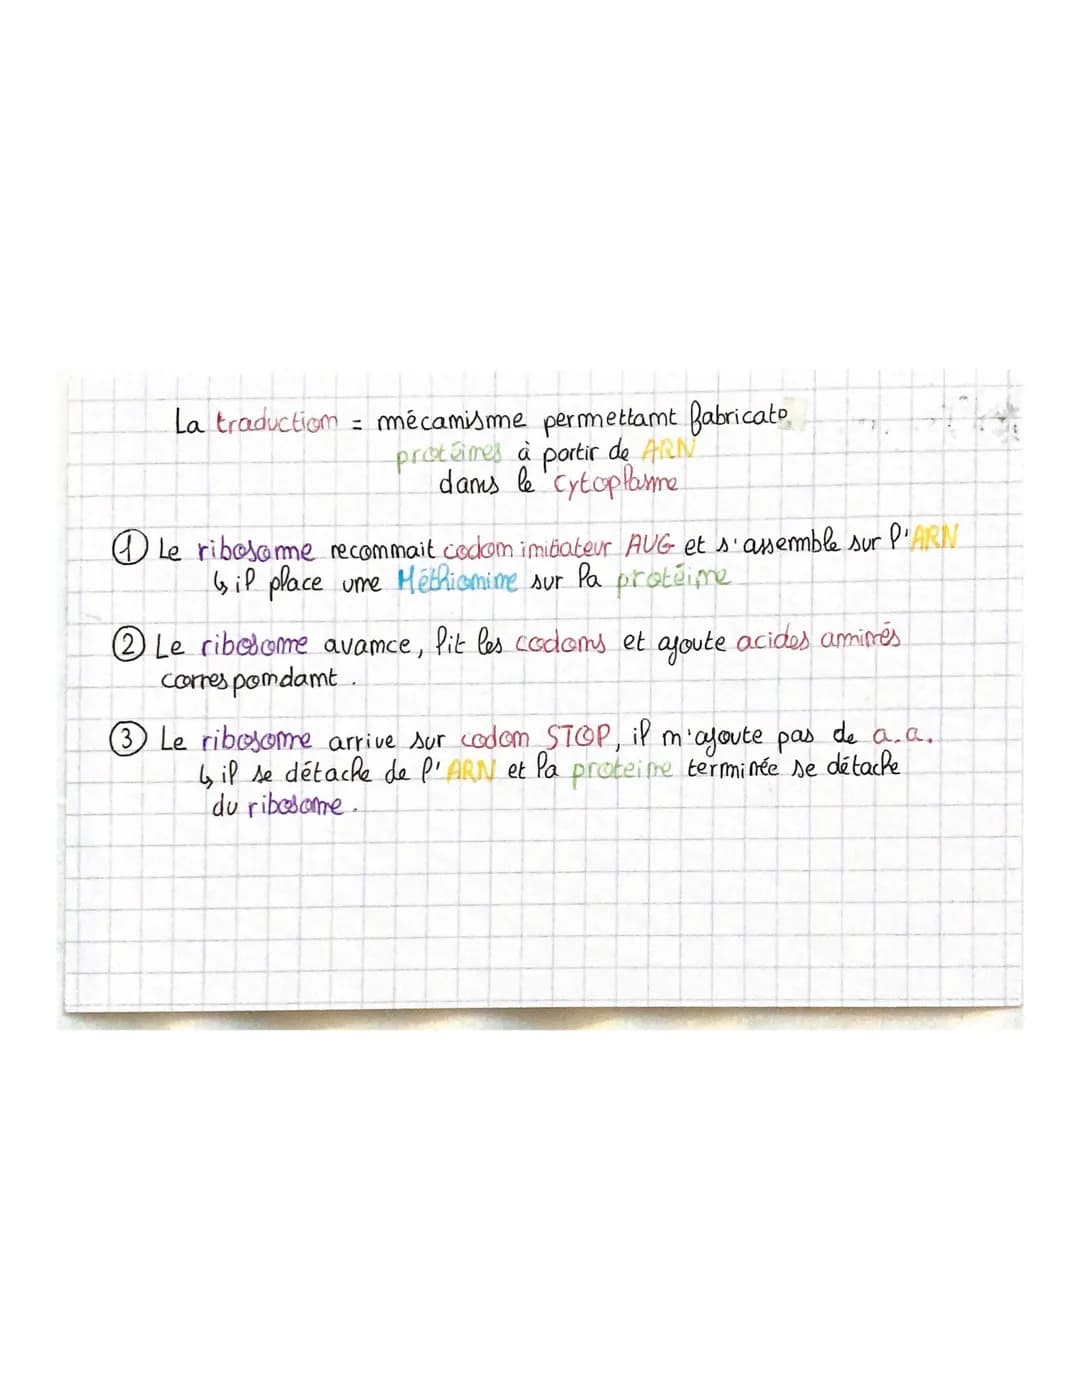 La traduction = mécanisme permettant fabricat°
protéines à partir de ARN
dans le cytoplasme
① Le ribosome reconnait codon initiateur AUG et s'assemble sur l'ARN
↳ il place une Méthionine sur la protéine
② Le ribosome avance, lit les codons et ajoute acides aminés
correspondant.
③ Le ribosome arrive sur codon STOP, il n'ajoute pas de a.a.
↳ il se détache de l'ARN et la proteine terminée se détache
du ribosome.